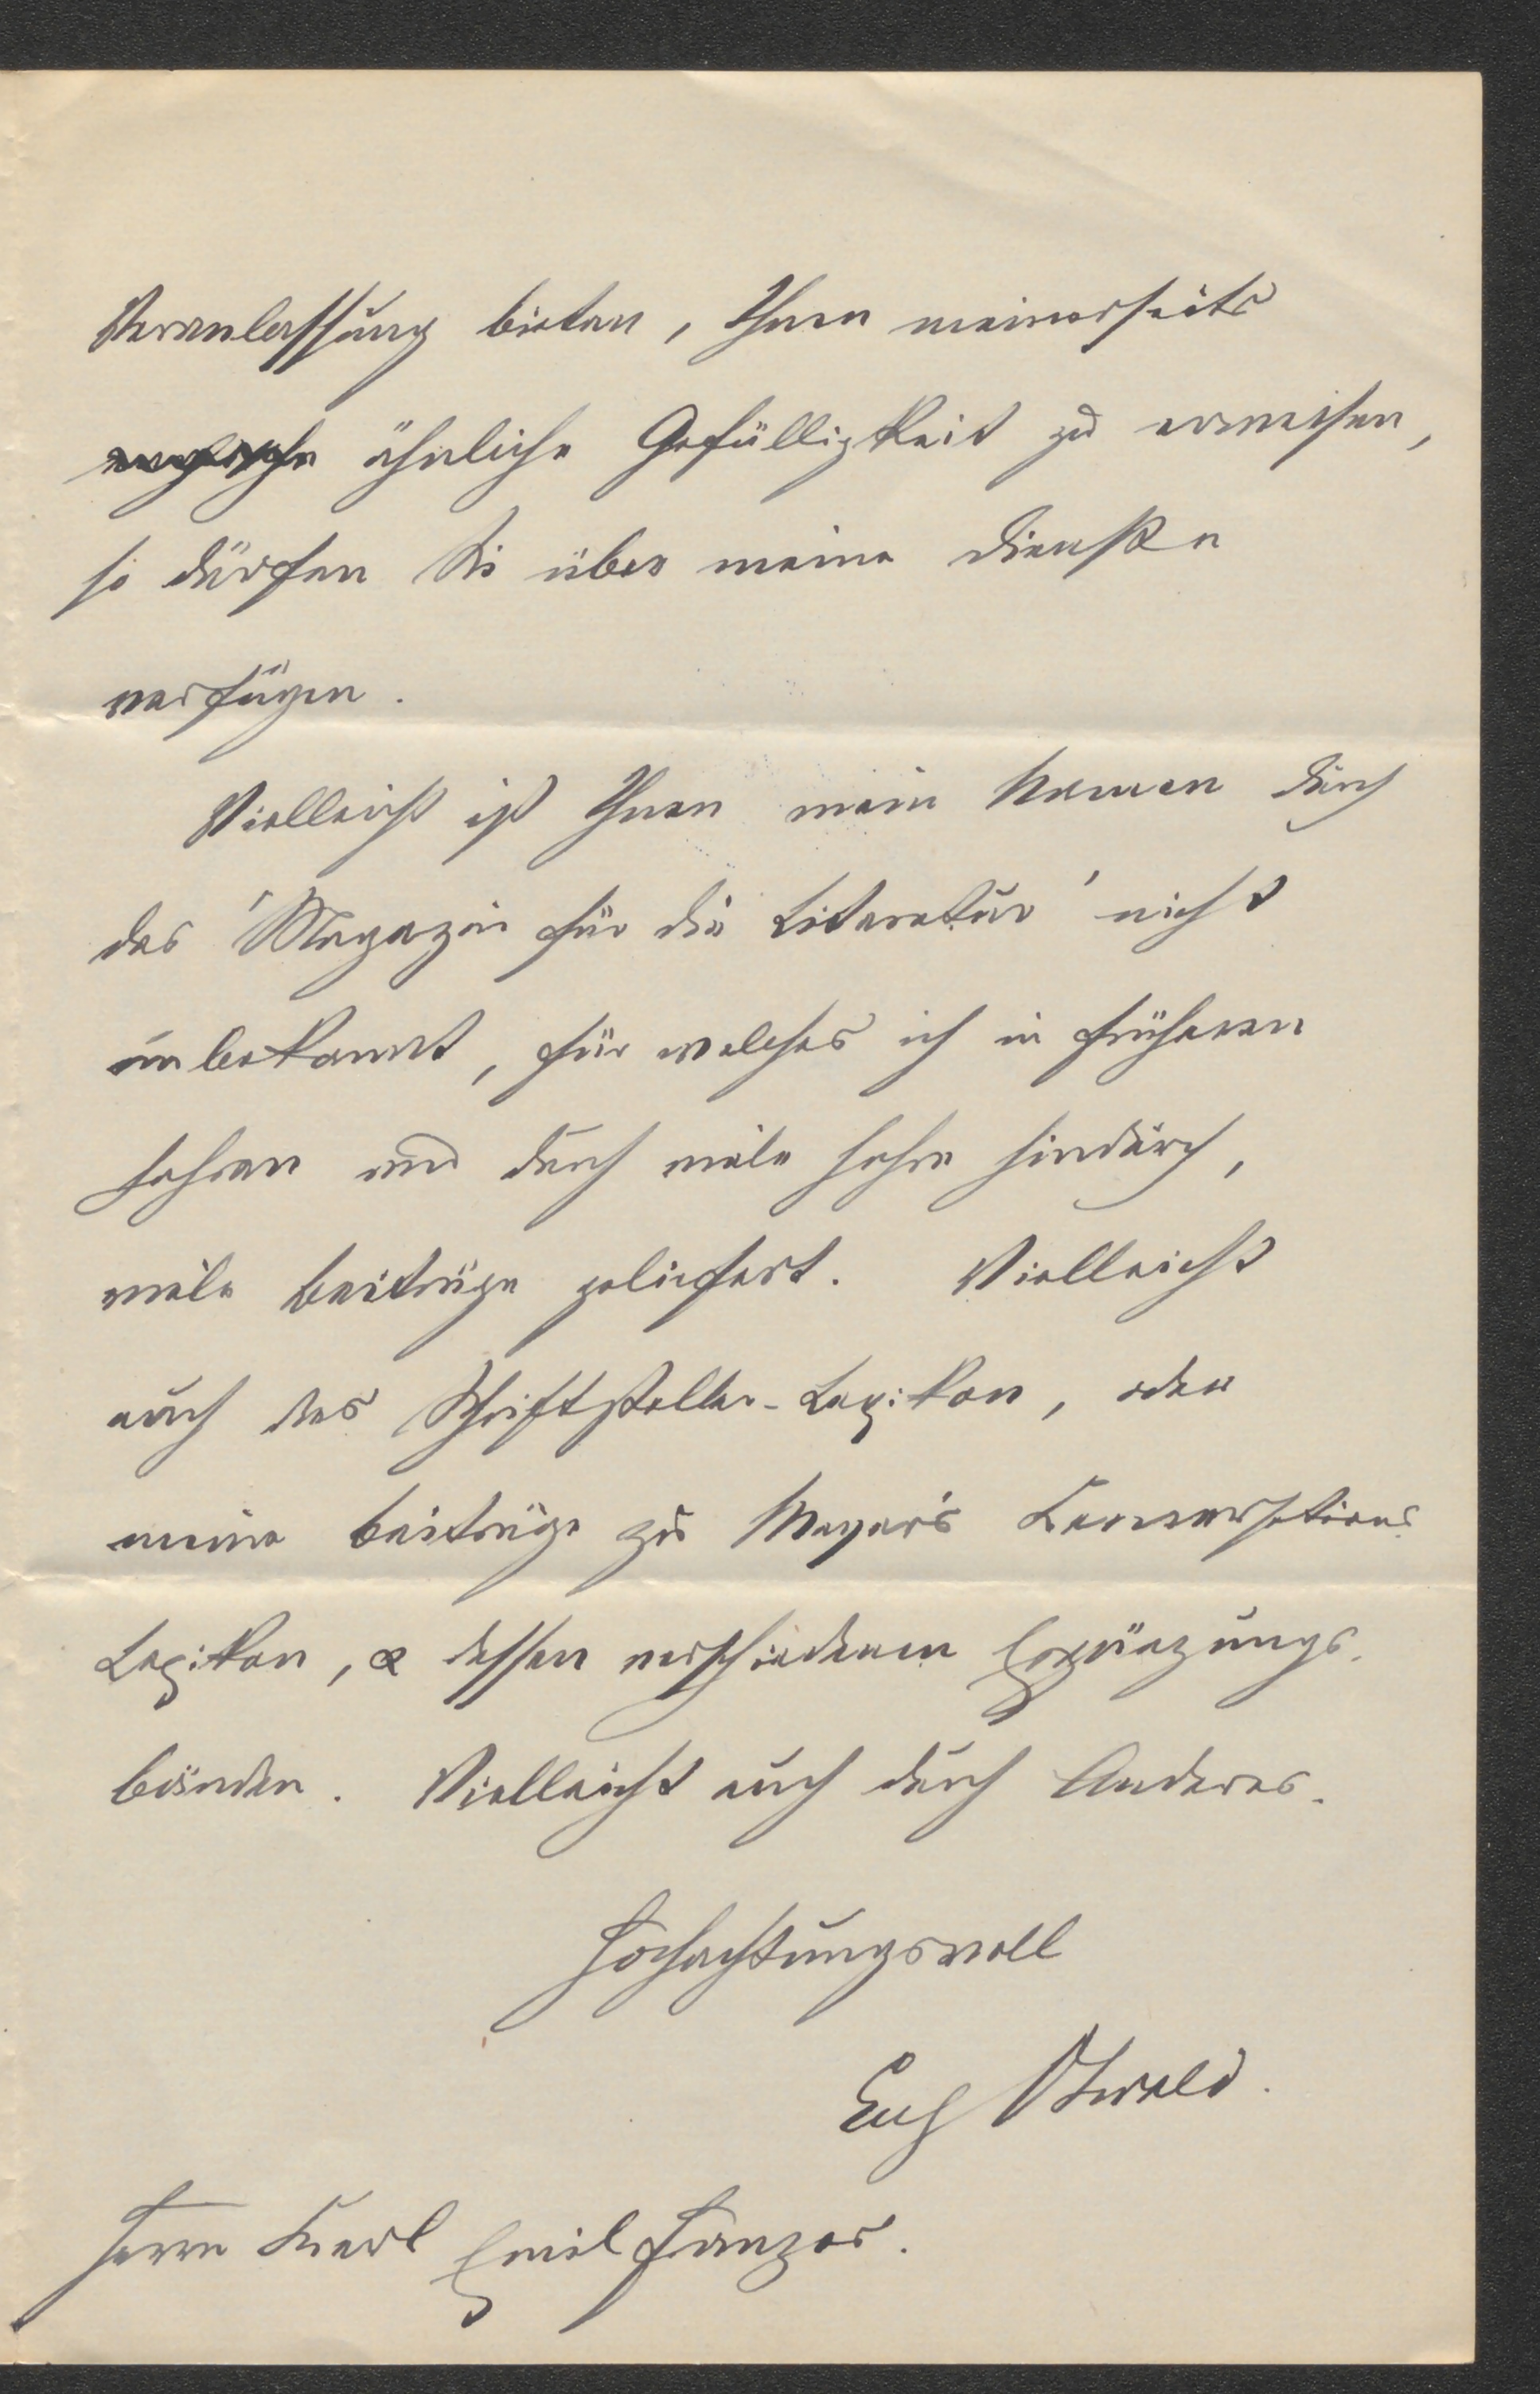 Veranlassung bieten, Ihnen meinerseits
ähnliche Gefälligkeit zu erweisen,
so dürfen Sie über meine Dienste
verfügen.
Vielleicht ist Ihnen mein Namen durch
das 'Magazin für die Literatur' nicht
unbekannt, für welches ich in früheren
Jahren und durch viele Jahre hindurch,
viele Beiträge geliefert. Vielleicht
auch das Schriftsteller-Lexikon, oder
meine Beiträge zu Meyer's Conversations
Lexikon, & dessen verschiedenen Ergänzungs-
bänden. Vielleicht auch durch Anderes.
Hochachtungsvoll
Eug Oswald.
Herrn Karl Emil Franzos.